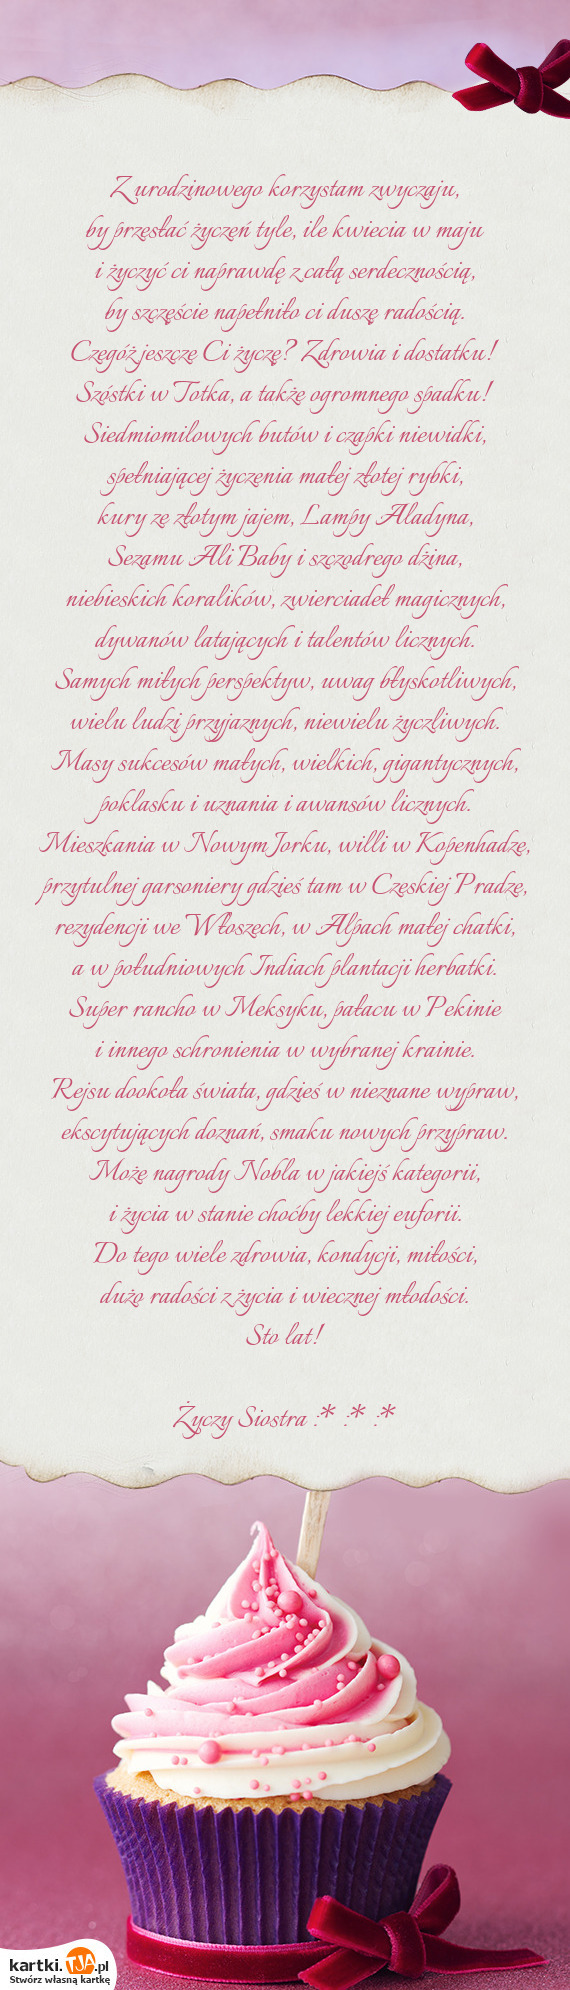 Z urodzinowego korzystam zwyczaju,
by przesłać życzeń tyle, ile kwiecia w maju
i życzyć ci naprawdę z całą serdecznością,
by szczęście napełniło ci duszę radością.
Czegóż jeszcze Ci życzę? Zdrowia i dostatku!
Szóstki w Totka, a także ogromnego spadku!
Siedmiomilowych butów i czapki niewidki,
spełniającej życzenia małej złotej rybki,
kury ze złotym jajem, Lampy Aladyna,
Sezamu Ali Baby i szczodrego dżina,
niebieskich koralików, zwierciadeł magicznych,
dywanów latających i talentów licznych.
Samych miłych perspektyw, uwag błyskotliwych,
wielu ludzi przyjaznych, niewielu życzliwych.
Masy sukcesów małych, wielkich, gigantycznych,
poklasku i uznania i awansów licznych.
Mieszkania w Nowym Jorku, willi w Kopenhadze,
przytulnej garsoniery gdzieś tam w Czeskiej Pradze,
rezydencji we Włoszech, w Alpach małej chatki,
a w południowych Indiach plantacji herbatki.
Super rancho w Meksyku, pałacu w Pekinie
i innego schronienia w wybranej krainie.
Rejsu dookoła świata, gdzieś w nieznane wypraw,
ekscytujących doznań, smaku nowych przypraw.
Może nagrody Nobla w jakiejś kategorii,
i życia w stanie choćby lekkiej euforii.
Do tego wiele zdrowia, kondycji, miłości,
dużo radości z życia i wiecznej młodości.
Sto lat!
Życzy Siostra :* :* :*
kartki.TJA.pl
Stwórz własną kartkę